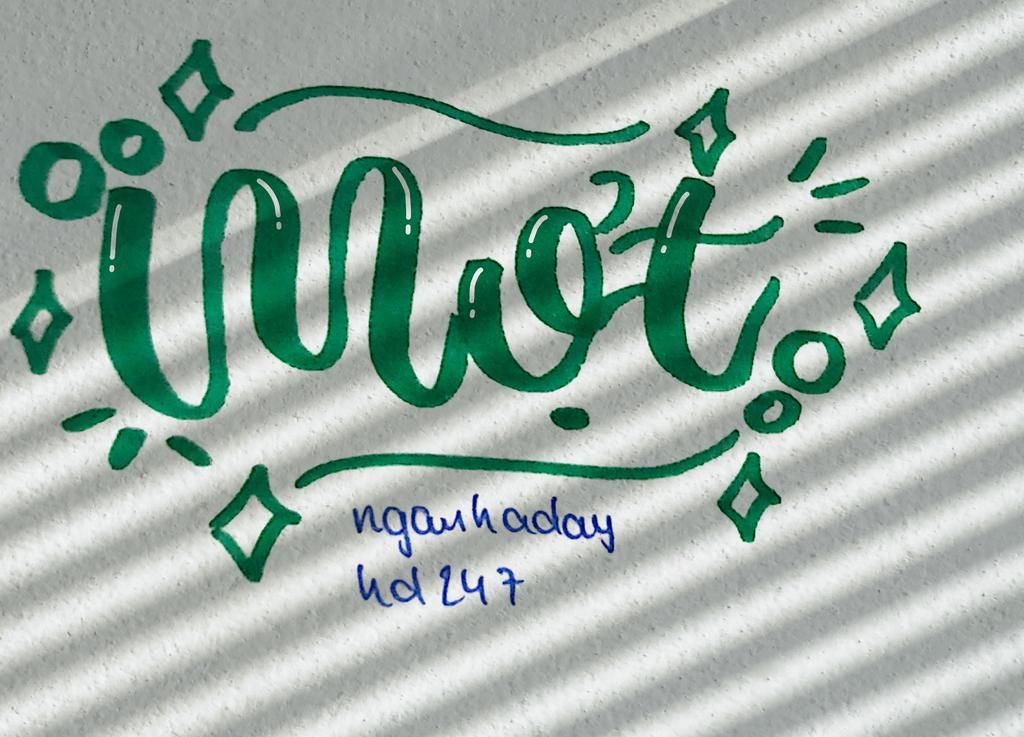 Mợt
nganhaday
hd 247